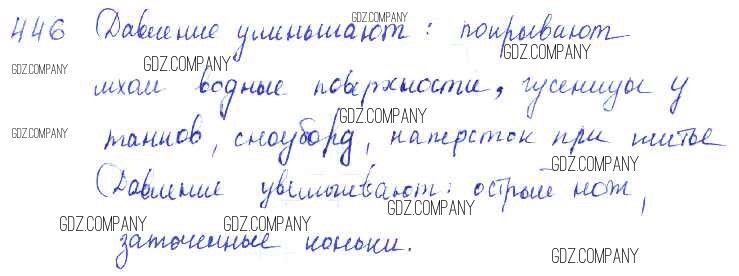 446 Давление уменьшают: покрывают
мхом водные поверхности, гусеницы у
танков, сноуборд, наперсток при шитье
Давление увеличивают: острый нож,
заточенные коньки.
GDZ.COMPANY
GDZ.COMPANY
GDZ.COMPANY
GDZ.COMPANY
GDZ.COMPANY
GDZ.COMPANY
GDZ.COMPANY
GDZ.COMPANY
GDZ.COMPANY
GDZ.COMPANY
GDZ.COMPANY